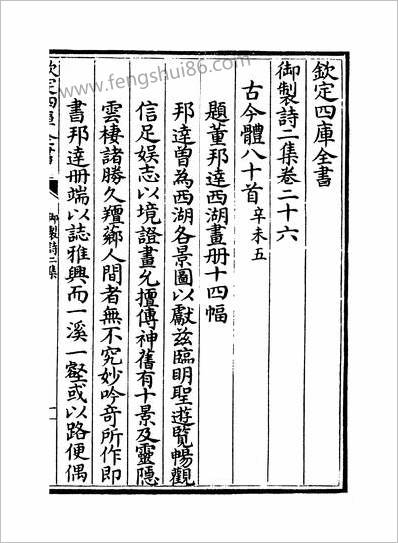 欽定四庫全書
御製詩二集卷二十六
古今體八十首辛未五
題董邦達西湖畫册十四幅
邦達曽為西湖各景圖以獻兹臨明聖遊覽暢觀
信足娱志以境證畫允擅傳神舊有十景及靈隱
雲棲諸勝久羶薌人間者無不究妙吟竒所作即
書邦達册端以誌雅興而一溪一壑或以路便偶
欽定四庫全書
御製詩二集
www.fengshui86.com